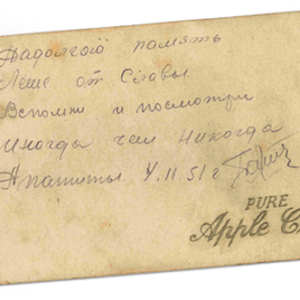 На долгою память
Леше от Словы.
Вспомни и посмотри
Иногда чем никогда
Апатиты 4.11.51 г
PURE
Apple